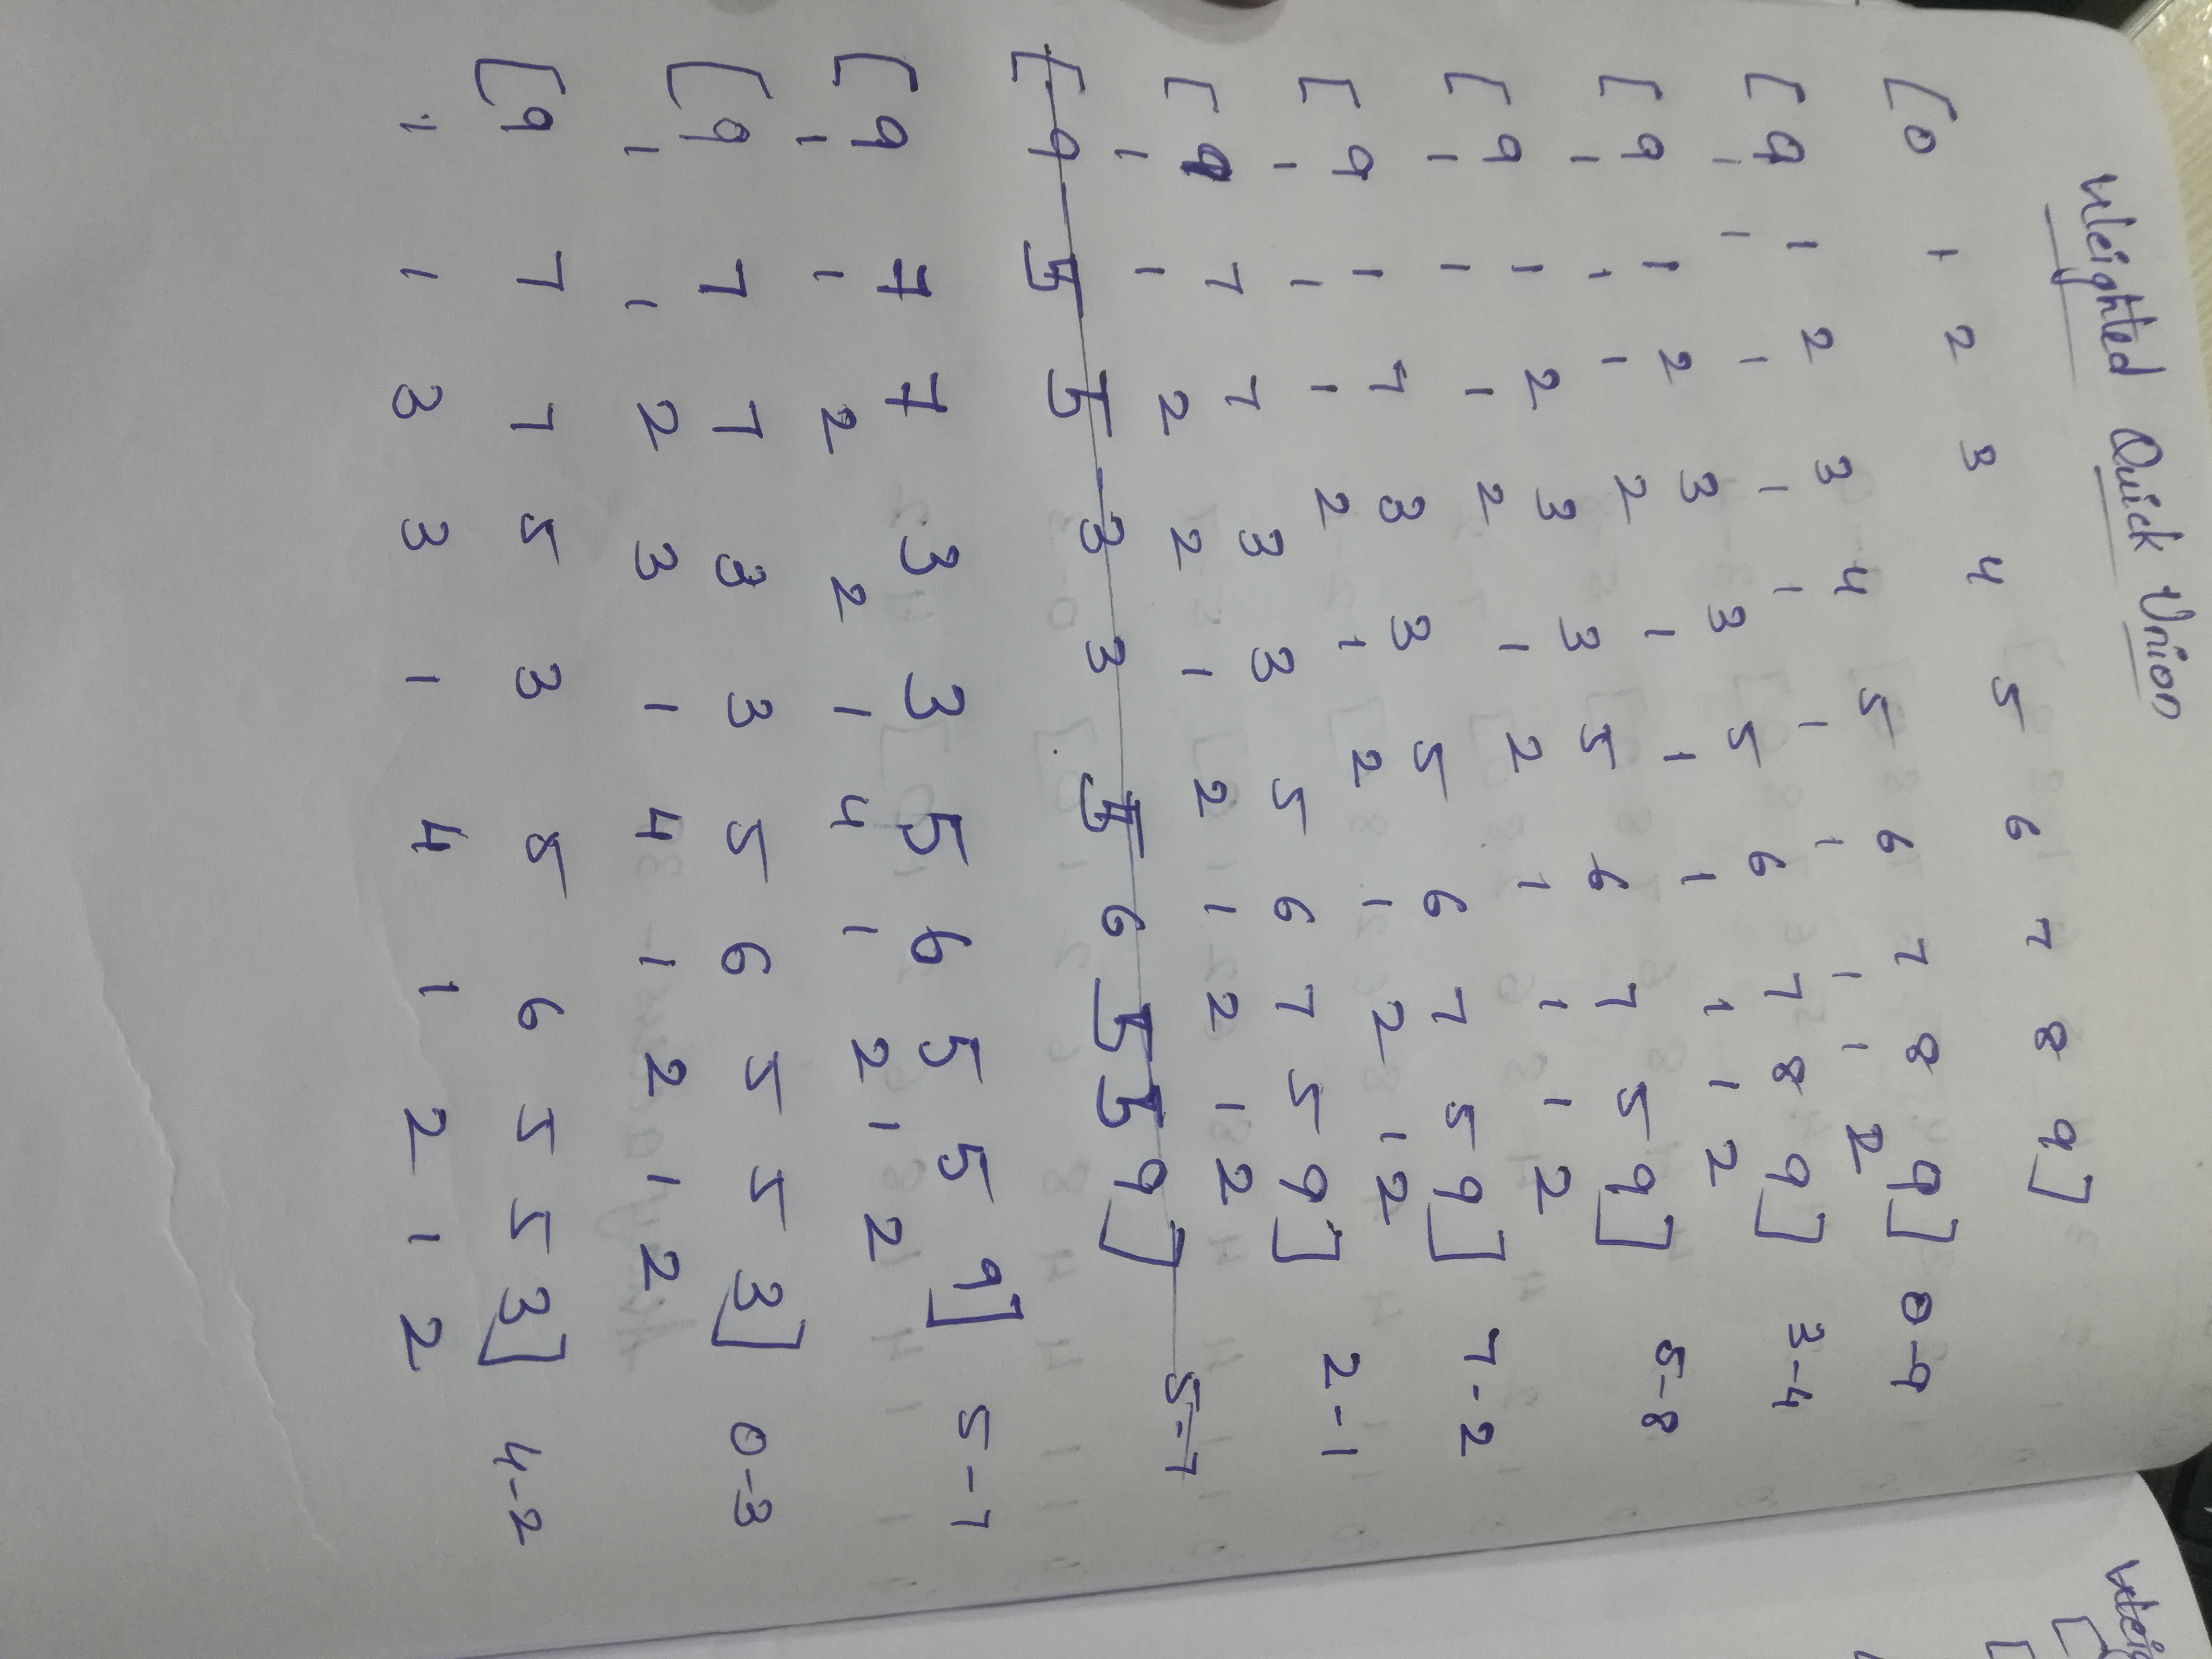 Weighted Quick Union
[0 1 2 3 4 5 6 7 8 9]
[9 1 2 3 4 5 6 7 8 9] 0-9
1 1 1 1 1 1 1 1 1 2
[9 1 2 3 3 5 6 7 8 9] 3-4
1 1 1 2 1 1 1 1 1 2
[9 1 2 3 3 5 6 7 5 9] 5-8
1 1 1 2 1 2 1 1 1 2
[9 1 7 3 3 5 6 7 5 9] 7-2
1 1 1 2 1 2 1 2 1 2
[9 7 7 3 3 5 6 7 5 9] 2-1
1 1 2 2 1 2 1 2 1 2
[9 5 5 3 3 5 6 5 5 9] 5-7
[9 7 7 3 3 5 6 5 5 9] 5-7
1 1 2 2 1 4 1 2 1 2
[9 7 7 3 3 5 6 5 5 3] 0-3
1 1 2 3 1 4 1 2 1 2
[9 7 7 5 3 5 6 5 5 3] 4-2
1 1 3 3 1 4 1 2 1 2